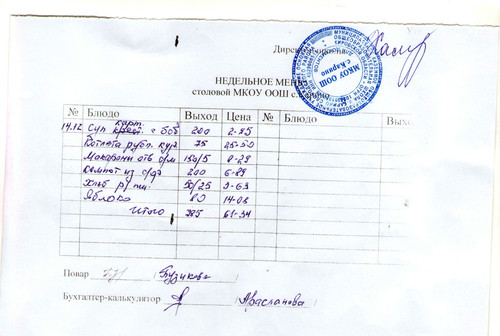 Директор школы
НЕДЕЛЬНОЕ МЕНЮ
столовой МКОУ ООШ с.Карино
МКОУ ООШ
с.Карино
№ Блюдо Выход Цена № Блюдо Вых
14.12 Суп карт. с боб 200 2-85
Котлета рубл. кур 75 25-50
Макароны отв с/м 150/5
Компот из с/ф 200 6-89
Хлеб р/пш. 50/25 3-63
Яблоко 80 14-08
Итого 785 61-34
Повар Бузикова
Бухгалтер-калькулятор Арасланова